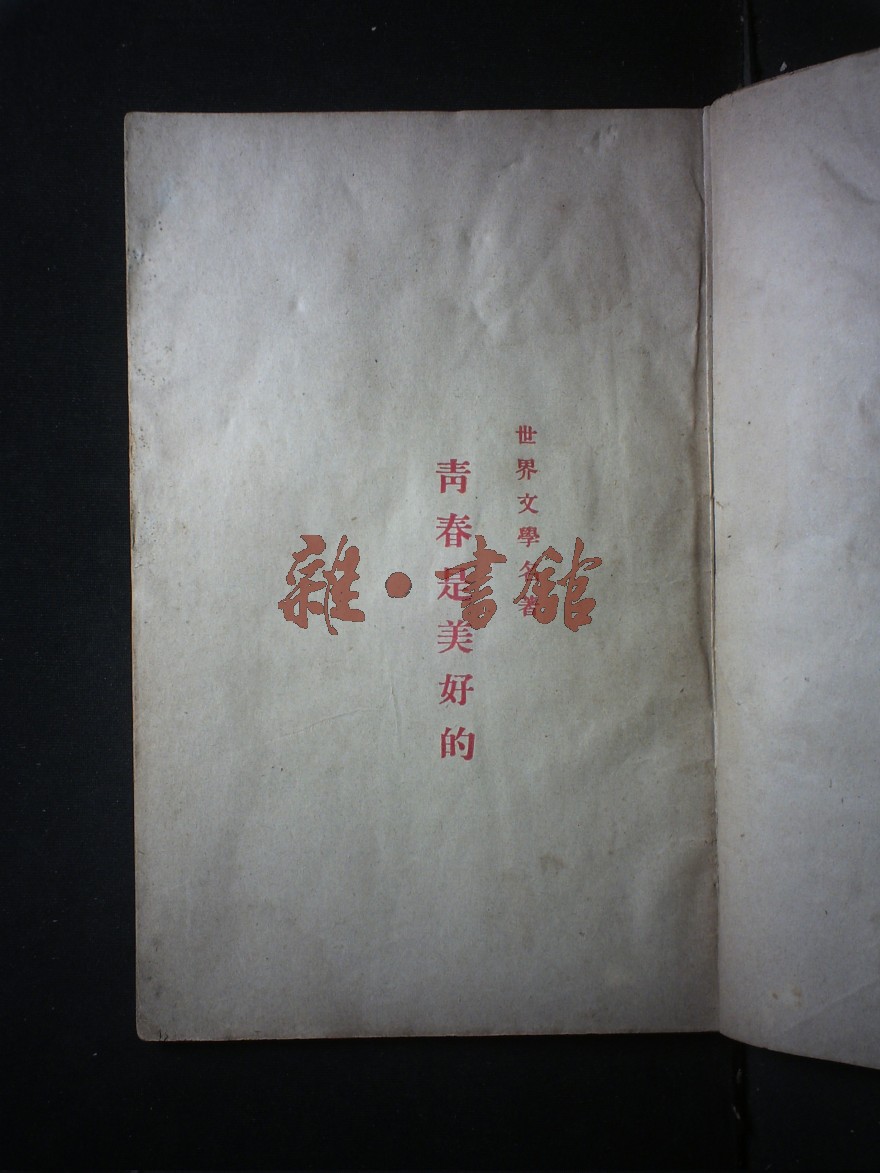 世界文學名著
青春是美好的
雜·書館